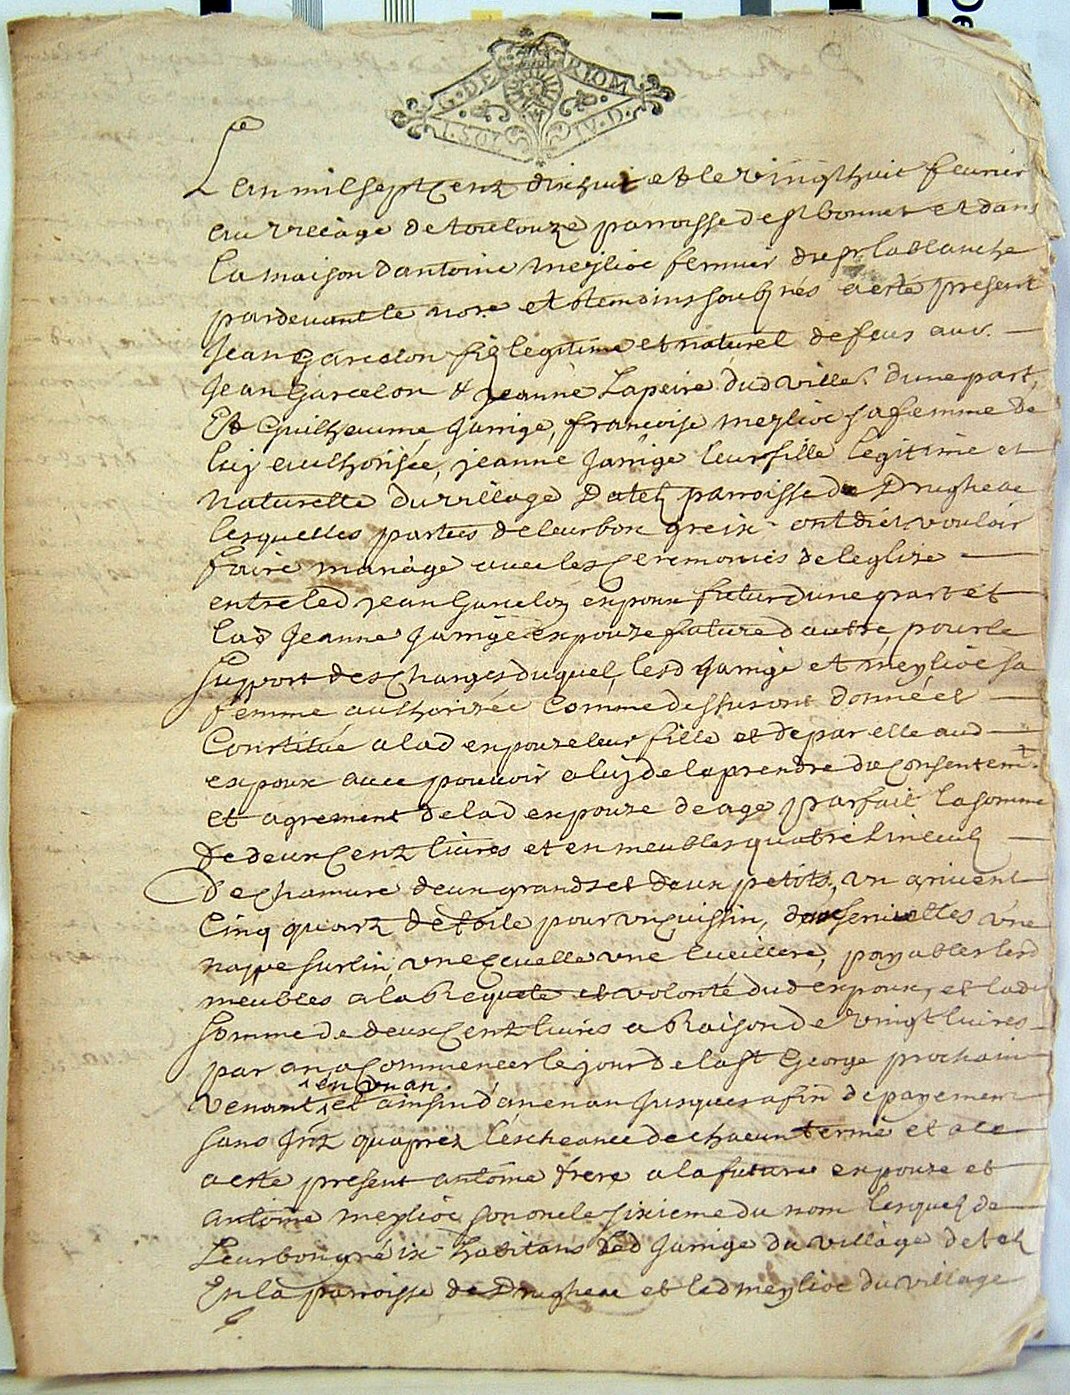 G. DE RIOM
1. SOL IV. D.
L'an mil sept Cent dixhuit et le vingthuit feurier
au village de toulouze parroisse de st bonnet et dans
la maison dantoine meylioc fermier du sr lablanche
pardeuant le nore et temoins soubsnés a esté present
Jean garcelon fis legitime et naturel de feus auv.
Jean garcelon & Jeanne Lapeire dud village dune part,
Et Guilheaume Jarrige, françoise meylioc sa femme de
luy authorisée, jeanne Jarrige leur fille legitime et
naturelle du village Datel parroisse de Drugheac
lesquelles parties de leur bon greix ont dict vouloir
faire mariage auec les Ceremonies de leglize
entre led jean Garcelon expoux futur d'une part et
lad Jeanne Jarrige expouze future d'autre, pour le
support des Charges duquel, lesd Jarrige et meylioc sa
femme authorizée Comme dessus ont donné et
Constitué a lad expouze leur fille et de par elle aud
expoux auec pouuoir a luy de la prendre du Consentemt
et agrement de lad expouze de age parfait la somme
de deux Cent liures et en meubles quatre linceuls
de Chamure deux grands et deux petits, un
Cinq quarz de toile pour un Cuissin, deux seruiettes une
nappe surlin, une Ecuelle une Cueillere, payables lesd
meubles a la Requete et volonté dud expoux, et lade
somme de deux Cent liures a Raison de vingt liures
par an a Commencer le jour de la st George prochain
venant en un an et ainsin d'an en an Jusques a fin de payement
sans Jnt quaprez lescheance de chacun terme et a ce
a esté present antoine frere a la future expouze et
antoine meylioc son oncle sixieme du nom lesquels de
Leur bon gré ix habitans led Jarrige du village detel
En la parroisse de Drugheac et led meylioc du village